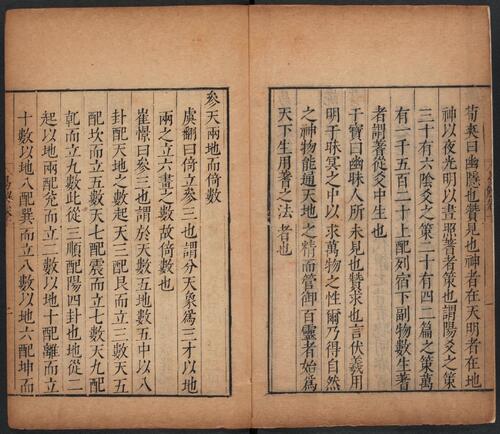 荀爽曰幽隱也贊見也神者在天明者在地
神以夜光明以晝照蓍者策也謂陽爻之策
三十有六陰爻之策二十有四二篇之策萬
有一千五百二十上配列宿下副物數生蓍
者謂蓍從爻中生也
干寶曰幽昧人所未見也贊求也言伏羲用
明于昧冥之中以求萬物之性爾乃得自然
之神物能通天地之精而管御百靈者始爲
天下生用蓍之法者也
參天兩地而倚數
虞翻曰倚立參三也謂分天象爲三才以地
兩之立六畫之數故倚數也
崔憬曰參三也謂於天數五地數五中以八
卦配天地之數起天三配艮而立三數天五
配坎而立五數天七配震而立七數天九配
乾而立九數此從三順配陽四卦也地從二
起以地兩配兌而立二數以地十配離而立
十數以地八配巽而立八數以地六配坤而